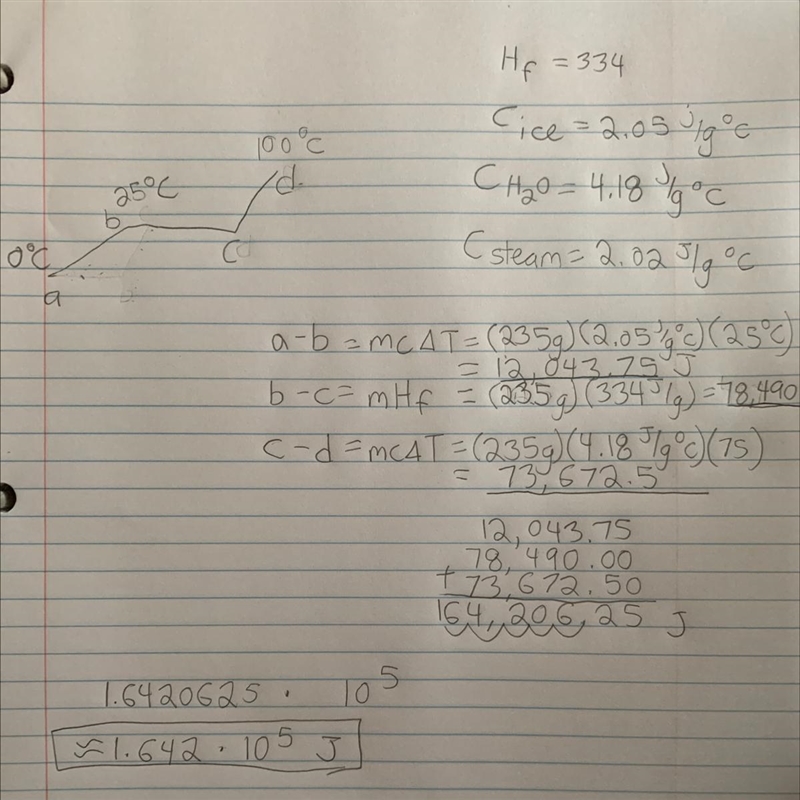 H_f = 334
C_ice = 2.05 J/g°C
C_H₂O = 4.18 J/g°C
C_steam = 2.02 J/g°C
100°C
d
25°C
b
C
0°C
a
a-b = mcΔT = (235g)(2.05 J/g°C)(25°C)
= 12,043.75 J
b-c = mH_f = (235g)(334 J/g) = 78,490
c-d = mcΔT = (235g)(4.18 J/g°C)(75)
= 73,672.5
12,043.75
78,490.00
+ 73,672.50
164,206,25 J
1.6420625 · 10⁵
≈ 1.642 · 10⁵ J